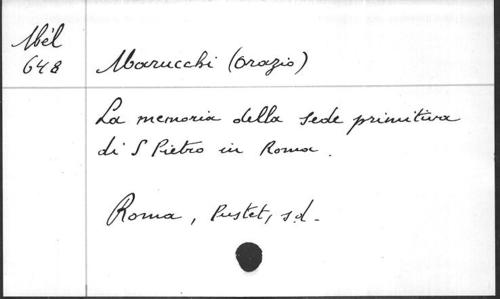 Mél
648
Marucchi (Orazio)
La memoria della sede primitiva
di S Pietro in Roma.
Roma, Pustet, s.d.